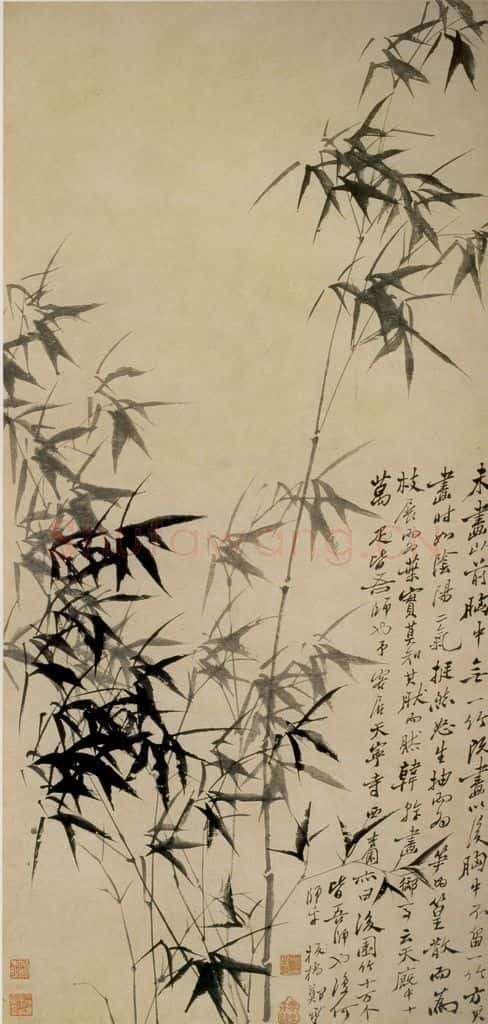 未畫以前胸中無一竹既畫以後胸中不留一竹方其
畫時如陰陽二氣挺然怒生抽而為筍為篁散而為
枝展而為葉實莫知其然而然韓幹畫御馬云天廄中十
萬匹皆吾師也予客居天寧寺西杏園亦曰後園竹十萬个
皆吾師也復何
師乎 板橋鄭燮
Shufawang.CN